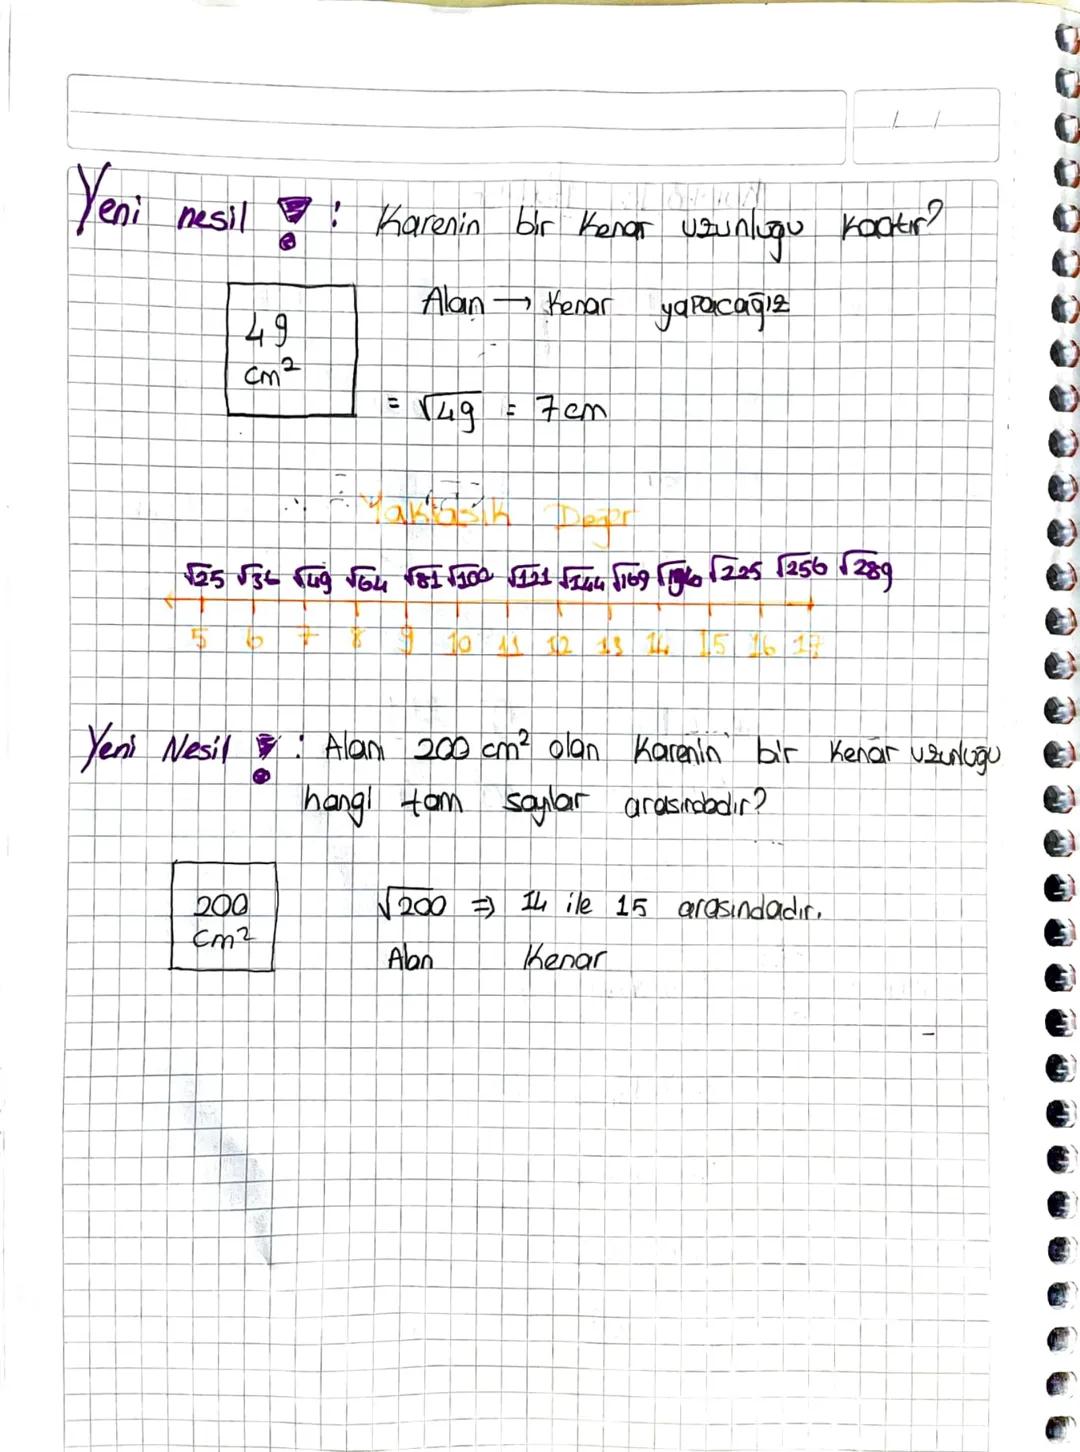 Yeni nesil ! : Karenin bir kenar uzunluğu kaçtır?
49 cm²
Alan → Kenar yapacağız
= √49 = 7 cm
Yaklaşık Değer
√25 √36 √49 √64 √81 √100 √121 √144 √169 √196 √225 √256 √289
5 6 7 8 9 10 11 12 13 14 15 16 17
Yeni Nesil ! : Alanı 200 cm² olan Karenin bir kenar uzunluğu
hangi tam sayılar arasındadır?
200 cm²
√200 ⇒ 14 ile 15 arasındadır.
Alan Kenar